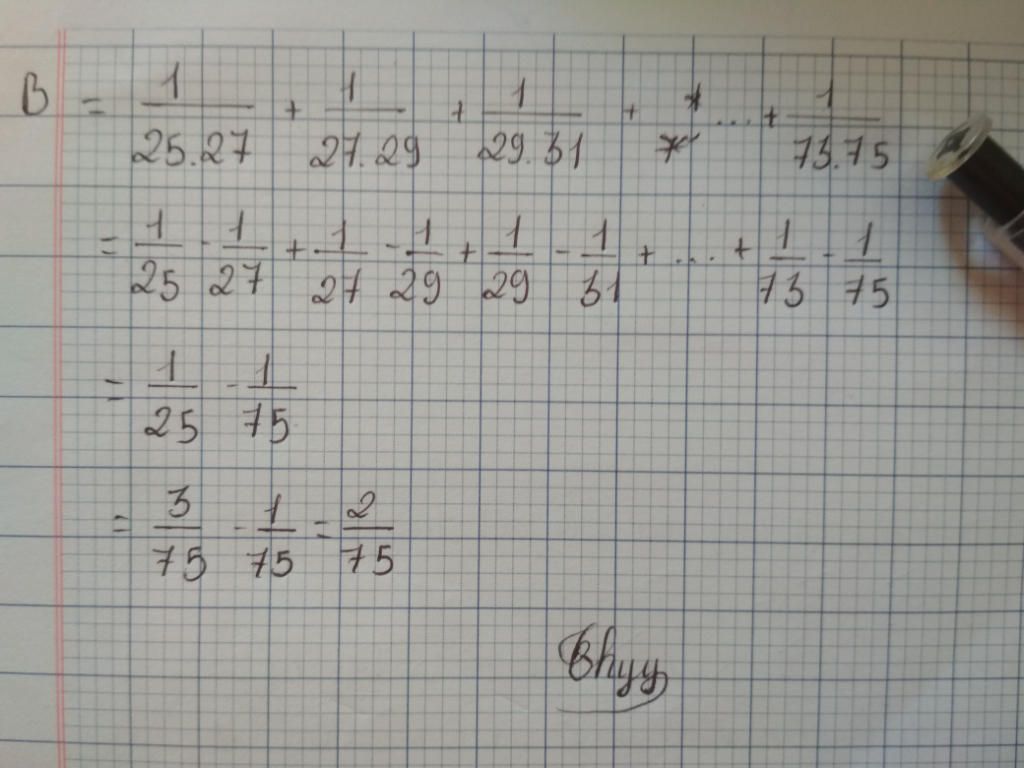 B = 1/25.27 + 1/27.29 + 1/29.31 + ... + 1/73.75
= 1/25 - 1/27 + 1/27 - 1/29 + 1/29 - 1/31 + .... + 1/73 - 1/75
= 1/25 - 1/75
= 3/75 - 1/75 = 2/75
Bhyy